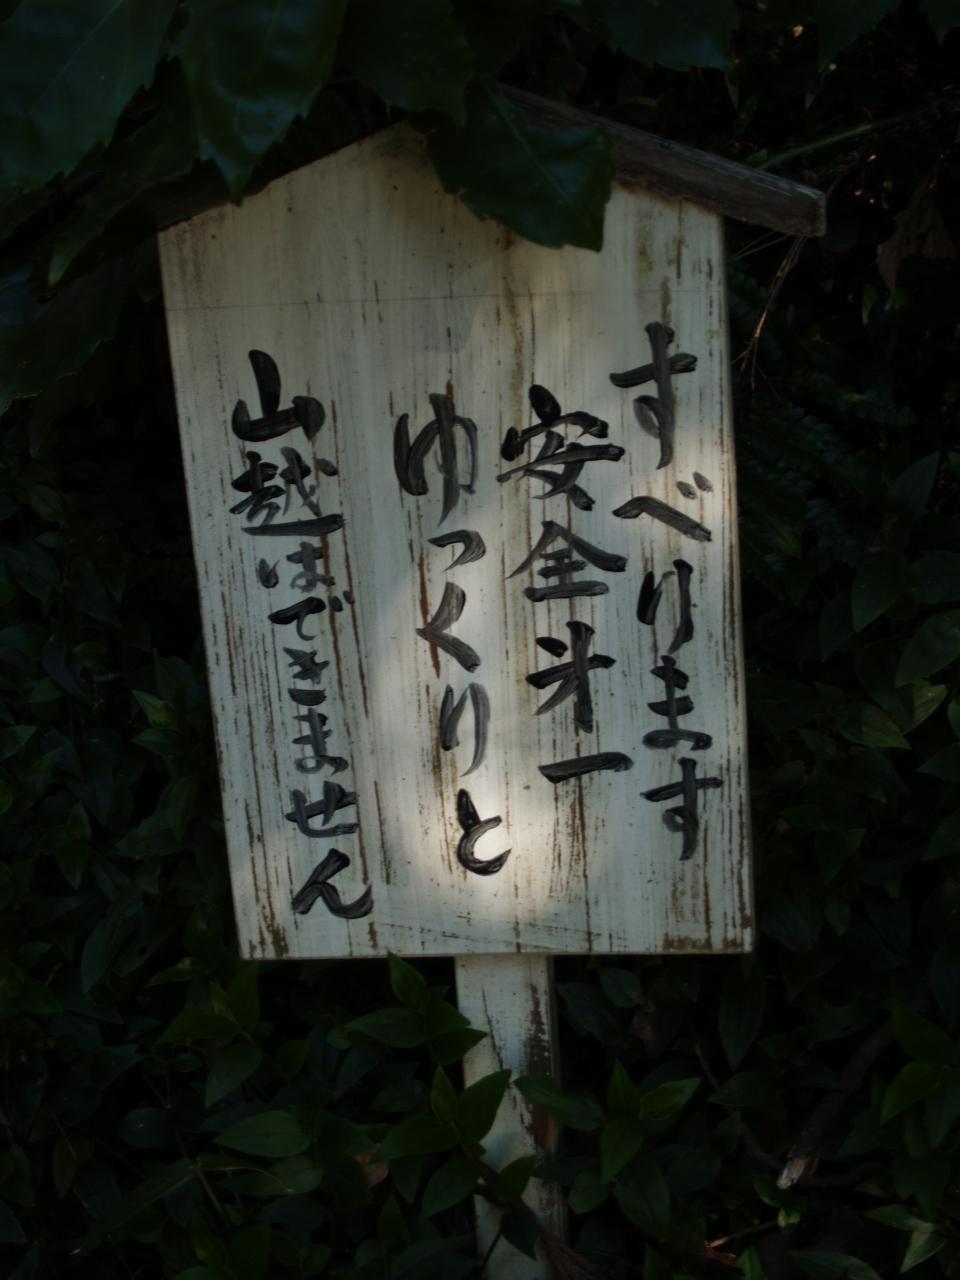 すべります
安全第一
ゆっくりと
山越はできません